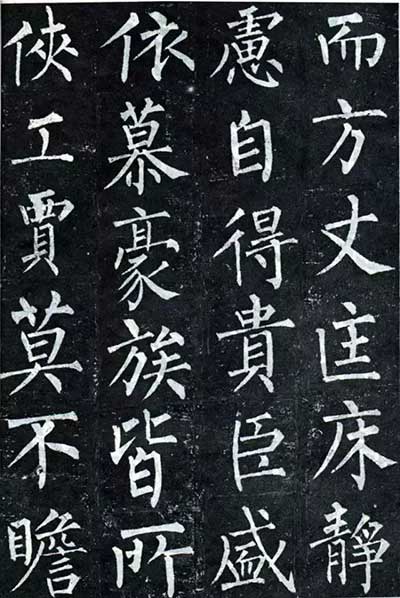 而方丈匡床靜
慮自得貴臣盛
依慕豪族皆所
俠工賈莫不瞻